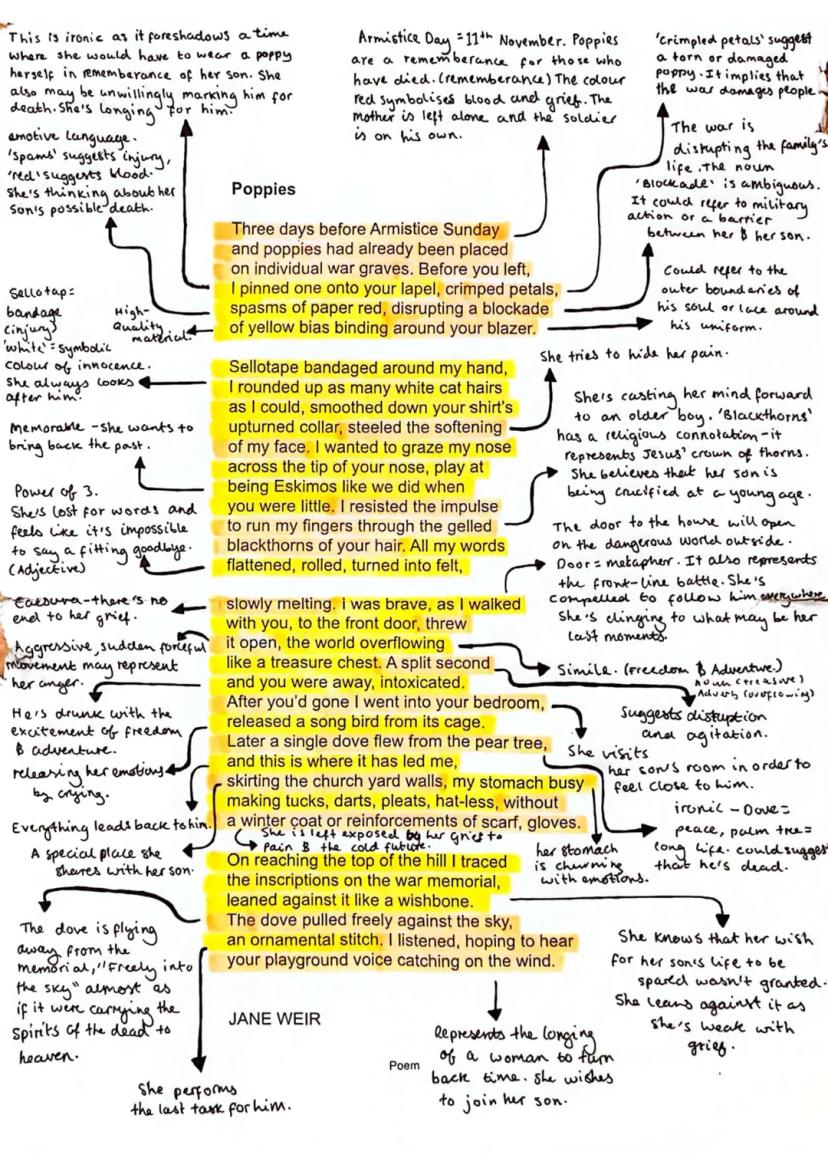 This is ironic as it foreshadows a time
where she would have to wear a poppy
herself in rememberance of her son. She
also may be unwillingly marking him for
death. She's longing for him.
Armistice Day = 11th November. Poppies
are a rememberance for those who
have died. (rememberance) The colour
red symbolises blood and grief. The
mother is left alone and the soldier
is on his own.
'Crimpled petals' suggest
a torn or damaged
poppy. It implies that
the war damages people.
emotive language.
'spams' suggests injury,
'red' suggests blood.
She's thinking about her
son's possible death.
The war is
disrupting the family's
life. The noun
'Blockade' is ambiguous.
It could refer to military
action or a barrier
between her & her son.
Could refer to the
outer boundaries of
his soul or lace around
his uniform.
Poppies
Three days before Armistice Sunday
and poppies had already been placed
on individual war graves. Before you left,
I pinned one onto your lapel, crimped petals,
spasms of paper red, disrupting a blockade
of yellow bias binding around your blazer.
High-
Quality
material.
Sellotap =
bandage
(injury)
'white' = symbolic
colour of innocence.
She always looks
after him.
She tries to hide her pain.
Sellotape bandaged around my hand,
I rounded up as many white cat hairs
as I could, smoothed down your shirt's
upturned collar, steeled the softening
of my face. I wanted to graze my nose
across the tip of your nose, play at
being Eskimos like we did when
you were little. I resisted the impulse
to run my fingers through the gelled
blackthorns of your hair. All my words
flattened, rolled, turned into felt,
Memorable - she wants to
bring back the past.
Power of 3.
She's lost for words and
feels like it's impossible
to say a fitting goodbye.
(Adjective)
She's casting her mind forward
to an older boy. 'Blackthorns'
has a religious connotation - it
represents Jesus' crown of thorns.
She believes that her son is
being crucified at a young age.
The door to the house will open
on the dangerous world outside.
Door = metapher. It also represents
the front-line battle. She's
compelled to follow him everywhere
She's clinging to what may be her
last moments.
slowly melting. I was brave, as I walked
with you, to the front door, threw
it open, the world overflowing
like a treasure chest. A split second
and you were away, intoxicated.
After you'd gone I went into your bedroom,
released a song bird from its cage.
Later a single dove flew from the pear tree,
and this is where it has led me,
skirting the church yard walls, my stomach busy
making tucks, darts, pleats, hat-less, without
a winter coat or reinforcements of scarf, gloves.
Caesura - there's no
end to her grief.
Aggressive, sudden forceful
movement may represent
her anger.
He's drunk with the
excitement of freedom
& adventure.
releasing her emotions
by crying.
Everything leads back to him.
A special place she
shares with her son.
Simile. (Freedom & Adventure.)
noun (treasure)
Adverb (overflowing)
Suggests distruption
and agitation.
She visits
her son's room in order to
feel close to him.
ironic - Dove =
peace, palm tree =
long life. could suggest
that he's dead.
She is left exposed by her grief to
pain & the cold future.
her stomach
is churning
with emotions.
On reaching the top of the hill I traced
the inscriptions on the war memorial,
leaned against it like a wishbone.
The dove pulled freely against the sky,
an ornamental stitch. I listened, hoping to hear
your playground voice catching on the wind.
The dove is flying
away from the
memorial, "Freely into
the sky" almost as
if it were carrying the
spirits of the dead to
heaven.
She knows that her wish
for her son's life to be
spared wasn't granted.
She leans against it as
she's weak with
grief.
JANE WEIR
Poem
She performs
the last task for him.
Represents the longing
of a woman to turn
back time. She wishes
to join her son.